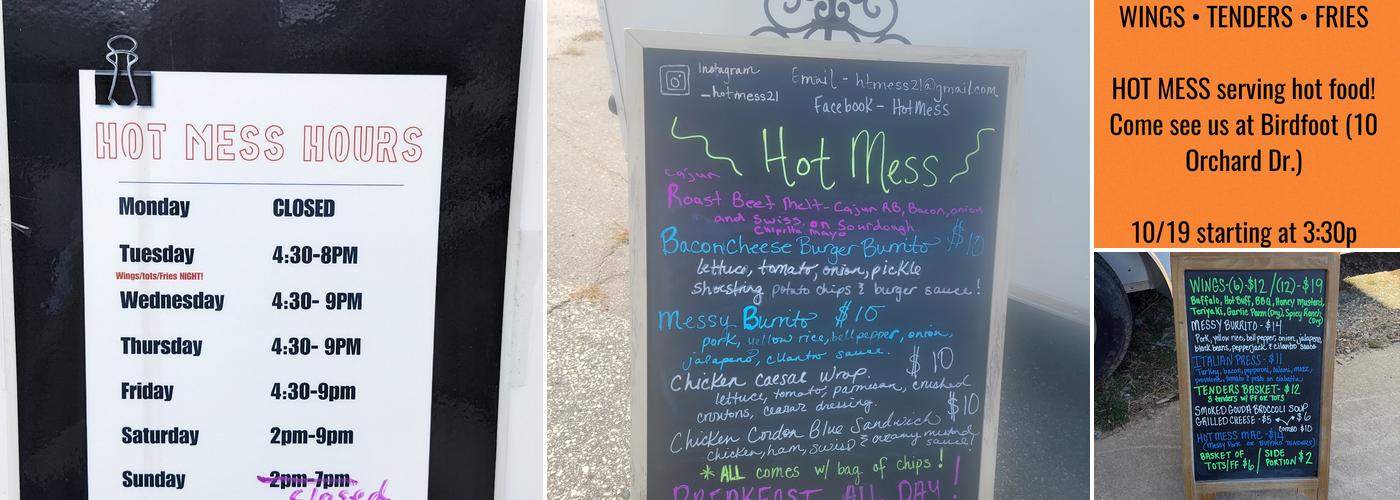 HOT MESS HOURS
Monday CLOSED
Tuesday 4:30-8PM
Wings/tots/Fries NIGHT!
Wednesday 4:30- 9PM
Thursday 4:30- 9PM
Friday 4:30-9pm
Saturday 2pm-9pm
Sunday 2pm-7pm
closed
Instagram
_hotmess21
Email - htmess21@gmail.com
Facebook - HotMess
Hot Mess
Cajun
Roast Beef Melt - Cajun RB, Bacon, onion
and Swiss on Sourdough.
Chipotle mayo
BaconCheese Burger Burrito $10
lettuce, tomato, onion, pickle
Shoestring potato chips & burger sauce!
Messy Burrito $10
pork, yellow rice, bell pepper, onion,
jalapeno, cilantro sauce.
Chicken Caesar Wrap. $10
lettuce, tomato, parmesan, crushed
croutons, ceasar dressing.
Chicken Cordon Blue Sandwich $10
chicken, ham, swiss & creamy mustard
sauce!
* ALL comes w/ bag of chips!
BREAKFAST ALL DAY!
WINGS • TENDERS • FRIES
HOT MESS serving hot food!
Come see us at Birdfoot (10
Orchard Dr.)
10/19 starting at 3:30p
WINGS-(6)-$12 / (12)-$19
Buffalo, Hot Buff, BBQ, Honey Mustard,
Teriyaki, Garlic Parm (Dry), Spicy Ranch
(Dry)
MESSY BURRITO - $14
Pork, yellow rice, bell pepper, onion, jalapeno,
black beans, pepperjack & cilantro sauce
ITALIAN PRESS - $11
Turkey, bacon, pepperoni, salami, mozz,
provolone, tomato & pesto on ciabatta
TENDERS BASKET - $12
3 tenders w/ FF or TOTS
SMOKED GOUDA BROCCOLI SOUP
$6
GRILLED CHEESE - $5
COMBO $10
HOT MESS MAC - $14
(Messy Pork or Buffalo Tenders)
BASKET OF
TOTS/FF $6 / SIDE
PORTION $2